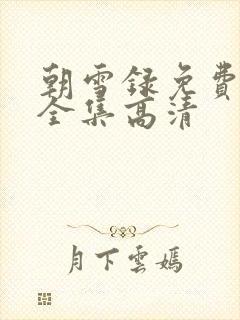 朝雪録免費
全集高清
月下雲嫣